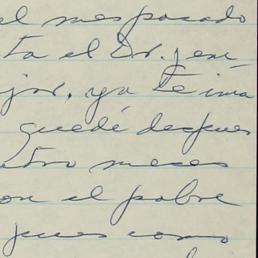 el mes pasado
ta el Dr. Jene
jor, ya te ima
quedé despues
atro meses
on el pobre
pues como